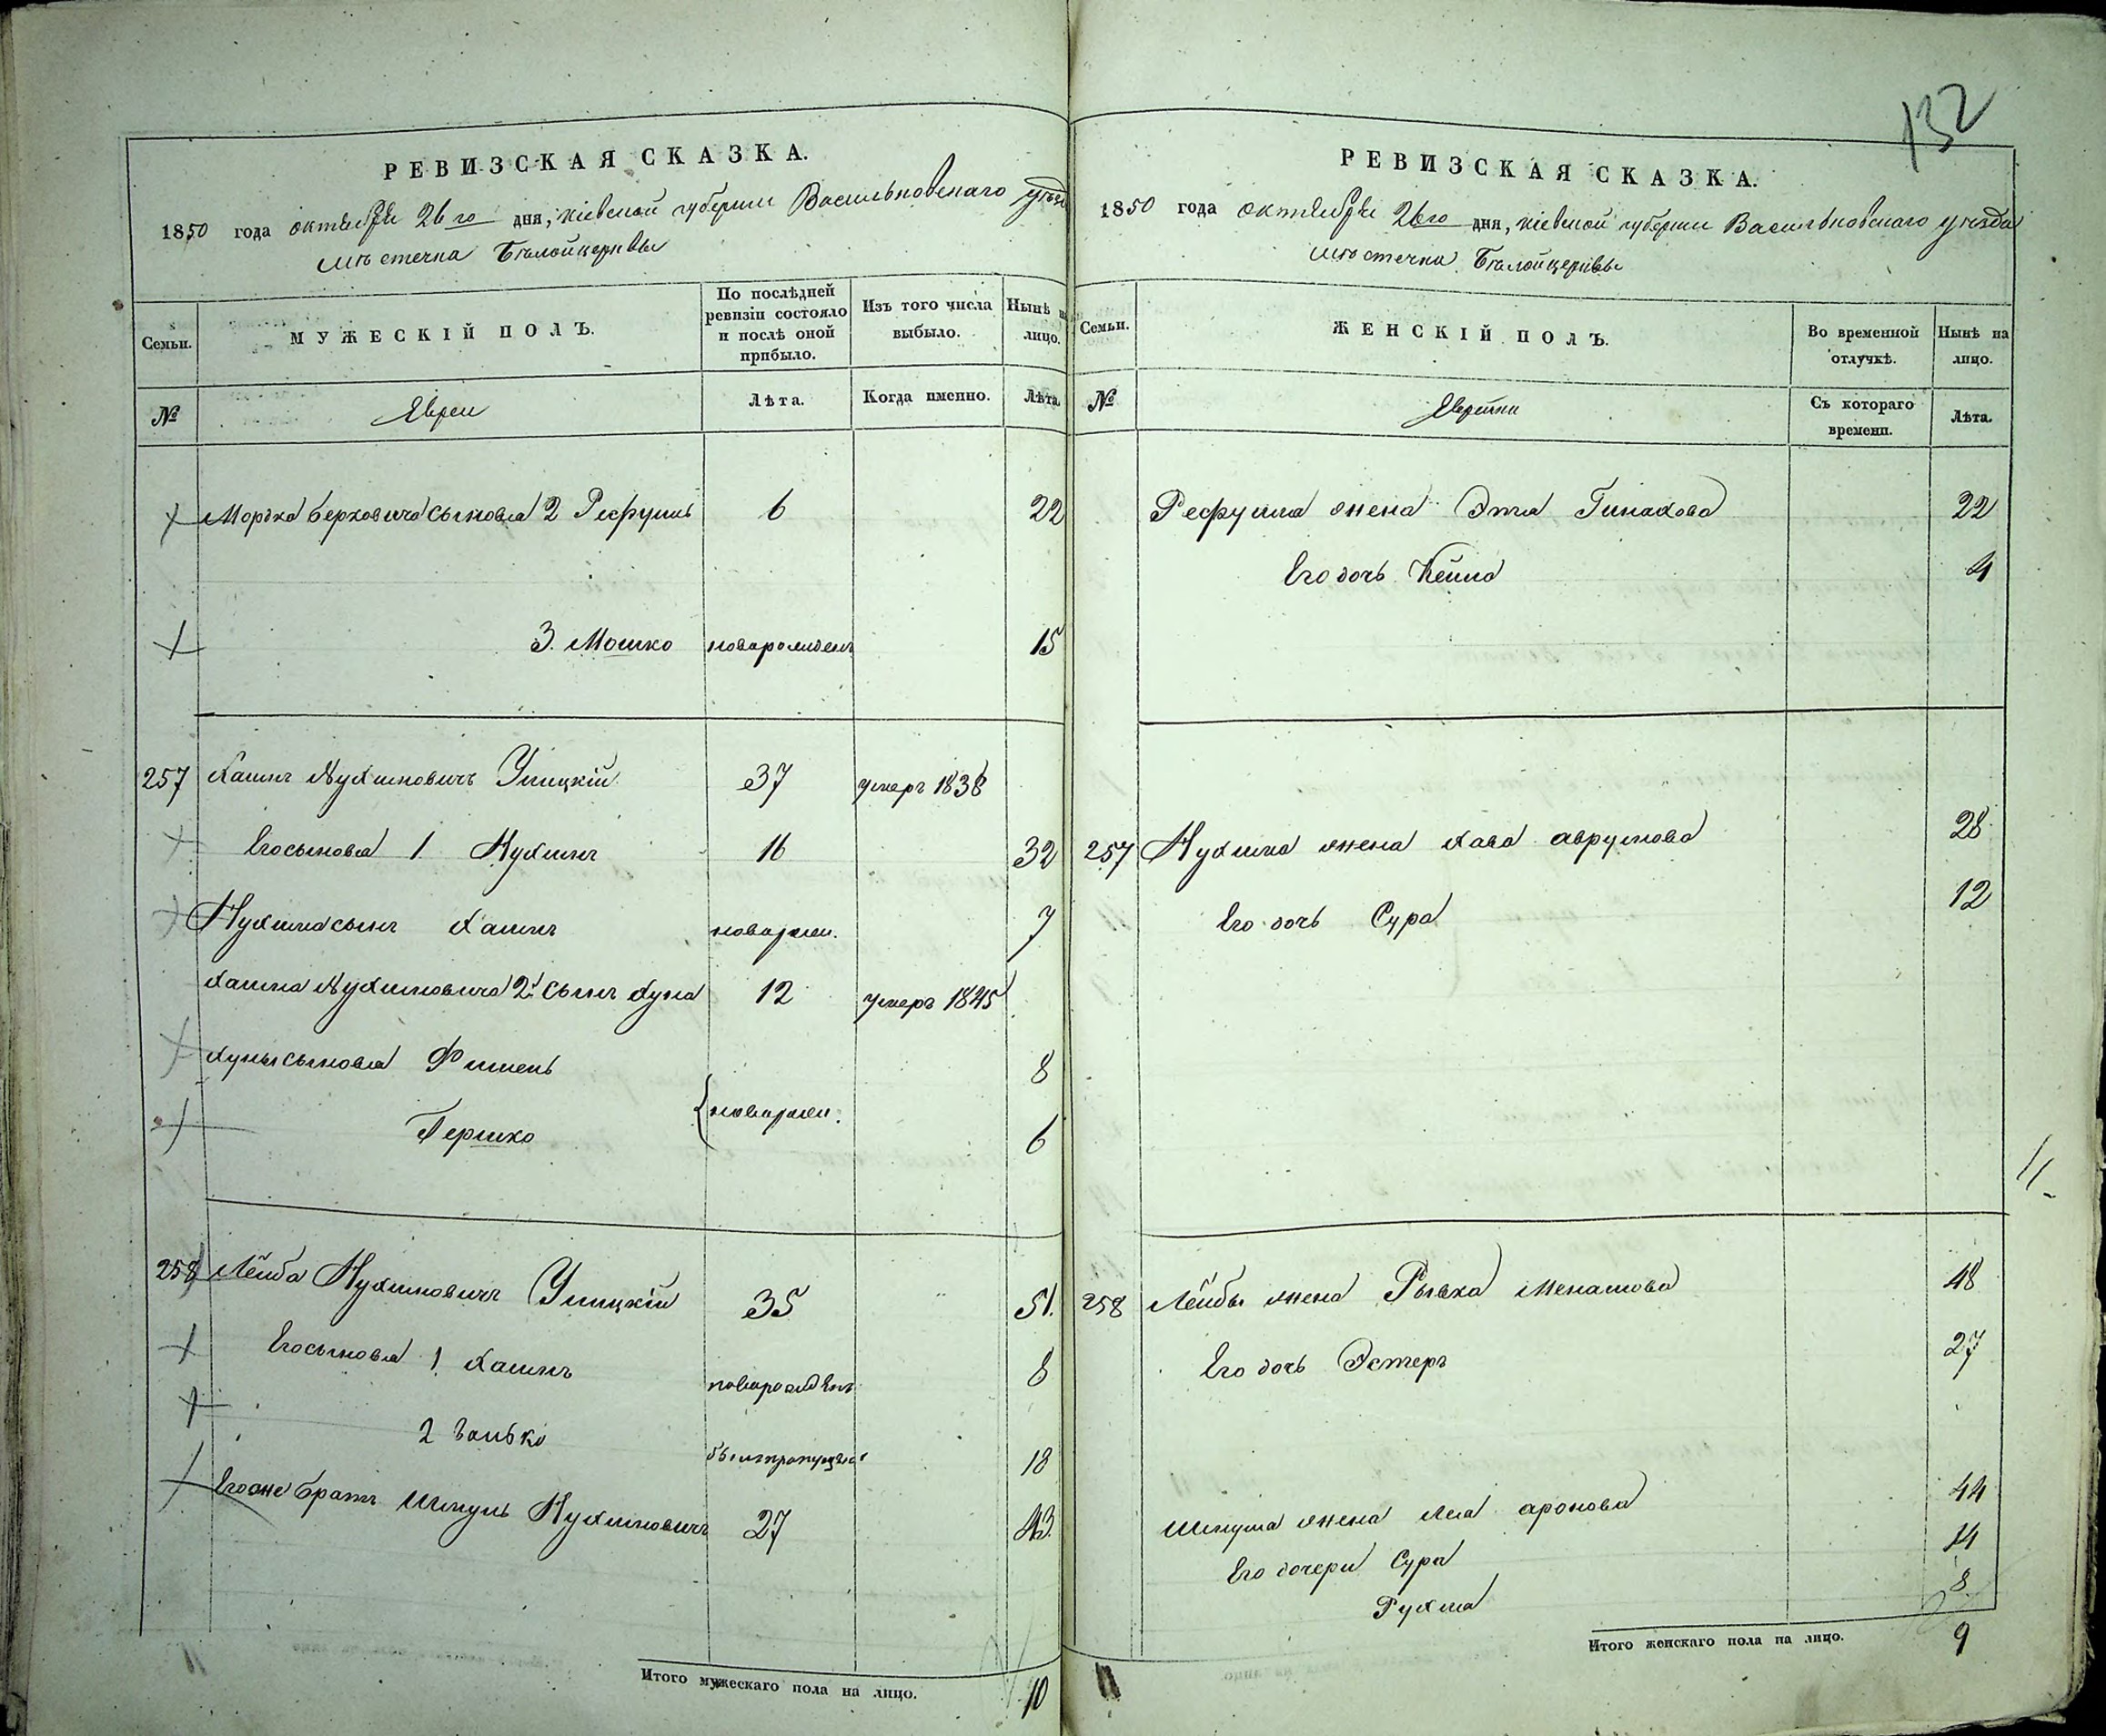 132
РЕВИЗСКАЯ СКАЗКА.
1850 года октября 26го дня, кіевской губерніи Васильковскаго уезда
мѣстечка Бѣлойцеркви
Семьи.
МУЖЕСКІЙ ПОЛЪ.
По послѣдней ревизіи состояло и послѣ оной прибыло.
Изъ того числа выбыло.
Нынѣ на лицо.
№
Евреи
Лѣта.
Когда именно.
Лѣта.
Морька берковича сыновья 2 Рефуиль 6 22
3. Мошко новорожденъ 15
257 Хаимъ Нухимовичъ Ушицкій 37 умеръ 1838
Его сыновья 1 Нухимъ 16 32
Нухима сынъ Хаимъ новорожд. 7
Хаима Нухимовича 2й сынъ Хуна 12 умеръ 1845
Хуны сыновья Фишель 8
Гершко новорожд. 6
258 Лейба Нухимовичъ Ушицкій 35 51.
Его сыновья 1 Хаимъ новорожденъ 8
2 Іонько былъ пропущенъ 18
Его же братъ Шмуль Нухимовичъ 27 43.
Итого мужескаго пола на лицо. 10
РЕВИЗСКАЯ СКАЗКА.
1850 года октября 26го дня, кіевской губерніи Васильковскаго уезда
мѣстечка Бѣлойцеркви
Семьи.
ЖЕНСКІЙ ПОЛЪ.
Во временной отлучкѣ.
Нынѣ на лицо.
№
Еврейки
Съ котораго времени.
Лѣта.
Рефуила жена Этя Пинахова 22
Его дочь Кейла 4
257 Нухима жена Хава аврумова 28
Его дочь Сура 12
258 Лейбы жена Рывка Менашова 48
Его дочь Эстеръ 27
Шмуля жена Лея аронова 44
Его дочери Сура 14
Рухля 8
Итого женскаго пола на лицо. 9